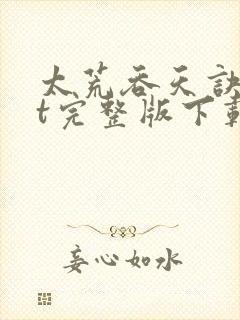 太荒吞天诀
t完整版下载
妄心如水